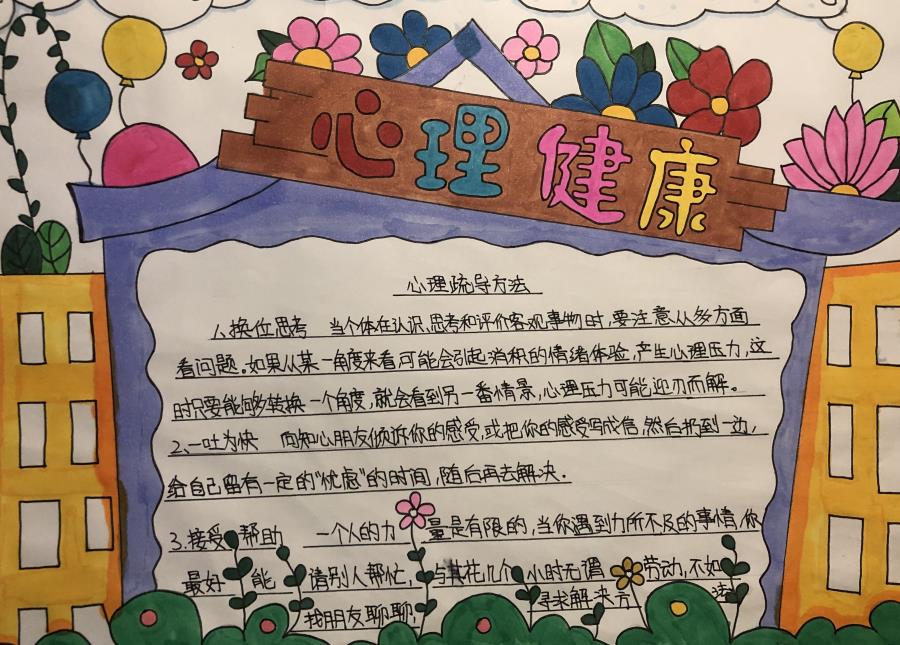 心理健康
心理疏导方法
1.换位思考 当个体在认识、思考和评价客观事物时,要注意从多方面
看问题。如果从某一角度来看可能会引起消积的情绪体验,产生心理压力,这
时只要能够转换一个角度,就会看到另一番情景,心理压力可能迎刃而解。
2、一吐为快 向知心朋友倾诉你的感受,或把你的感受写成信,然后扔到一边,
给自己留有一定的“忧虑”的时间,随后再去解决.
3.接受 帮助 一个人的力 量是有限的,当你遇到力所不及的事情,你
最好 能 请别人帮忙, 与其花几个 小时无谓 劳动,不如
找朋友聊聊, 寻求解决方 法